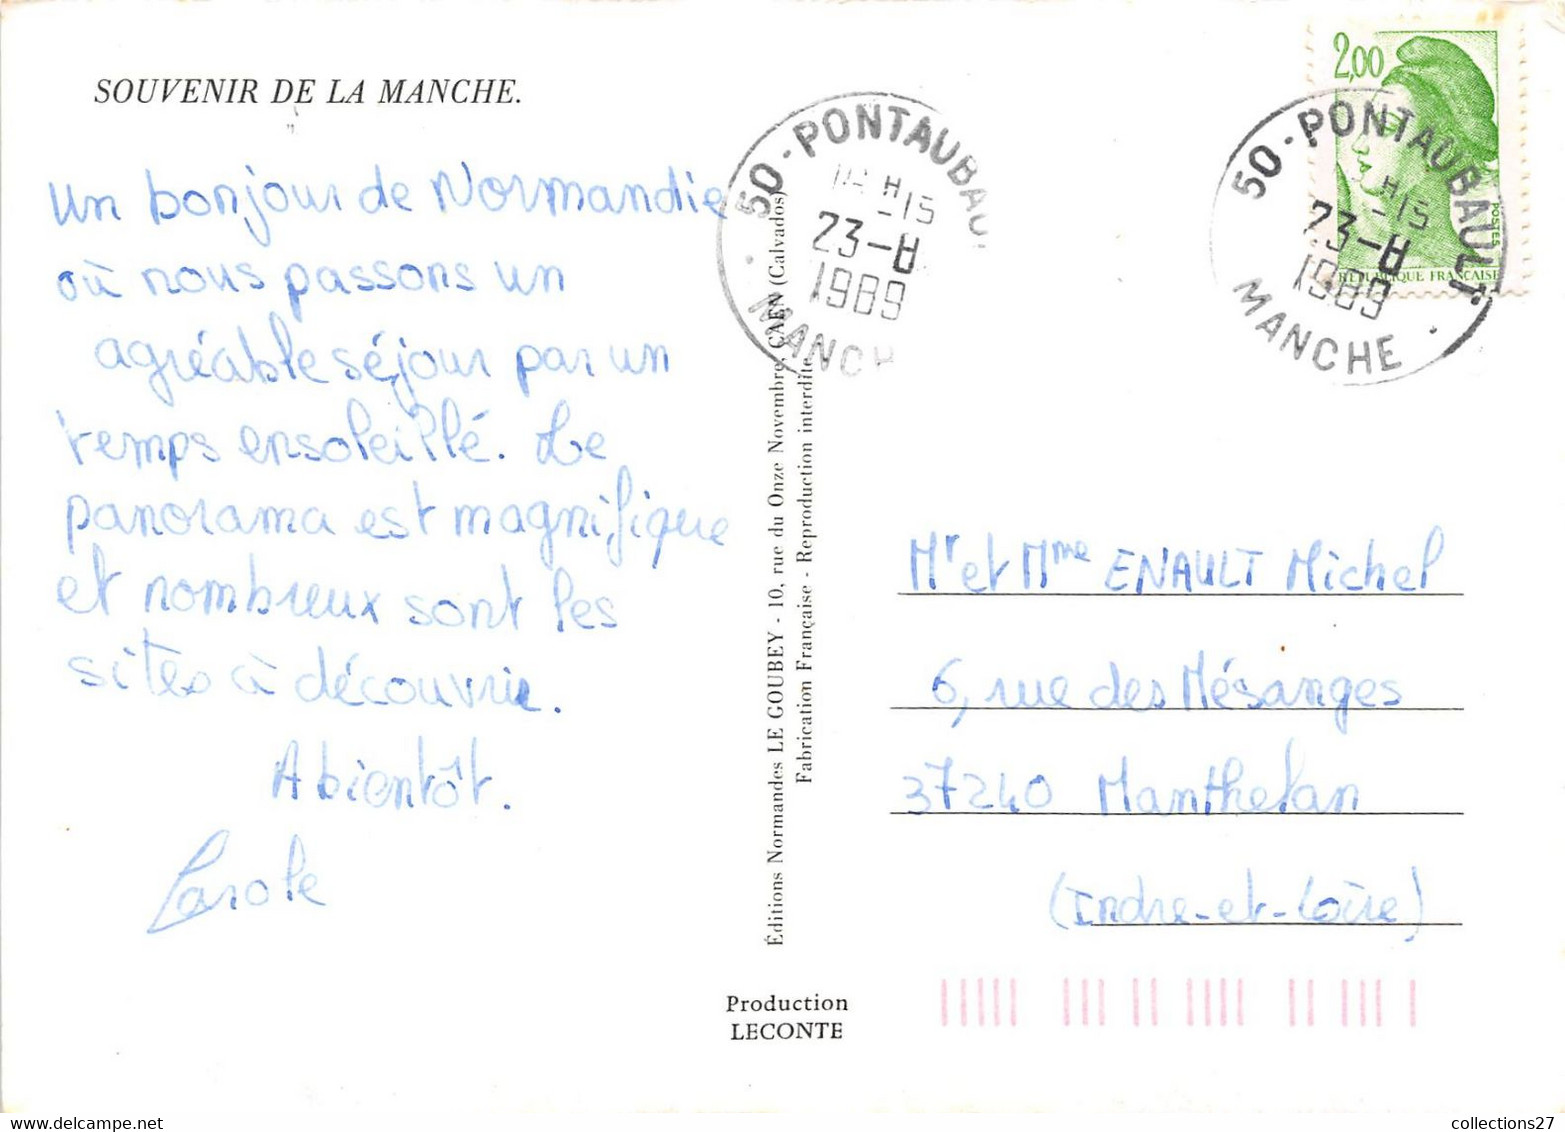 SOUVENIR DE LA MANCHE.
Un bonjour de Normandie
où nous passons un
agréable séjour par un
temps ensoleillé. Le
panorama est magnifique
et nombreux sont les
sites à découvrir.
A bientôt.
Carole
Éditions Normandes LE GOUBEY - 10, rue du Onze Novembre - CAEN (Calvados)
Fabrication Française - Reproduction interdite
Production
LECONTE
50 - PONTAUBAU
H
-15
23-8
1989
MANCH
2,00
POSTES
REPUBLIQUE FRANÇAISE
50 - PONTAUBAULT
H
-15
23-8
1989
MANCHE
Mr et Mme ENAULT Michel
6, rue des Mésanges
37240 Manthelan
(Indre-et-Loire)
collections27